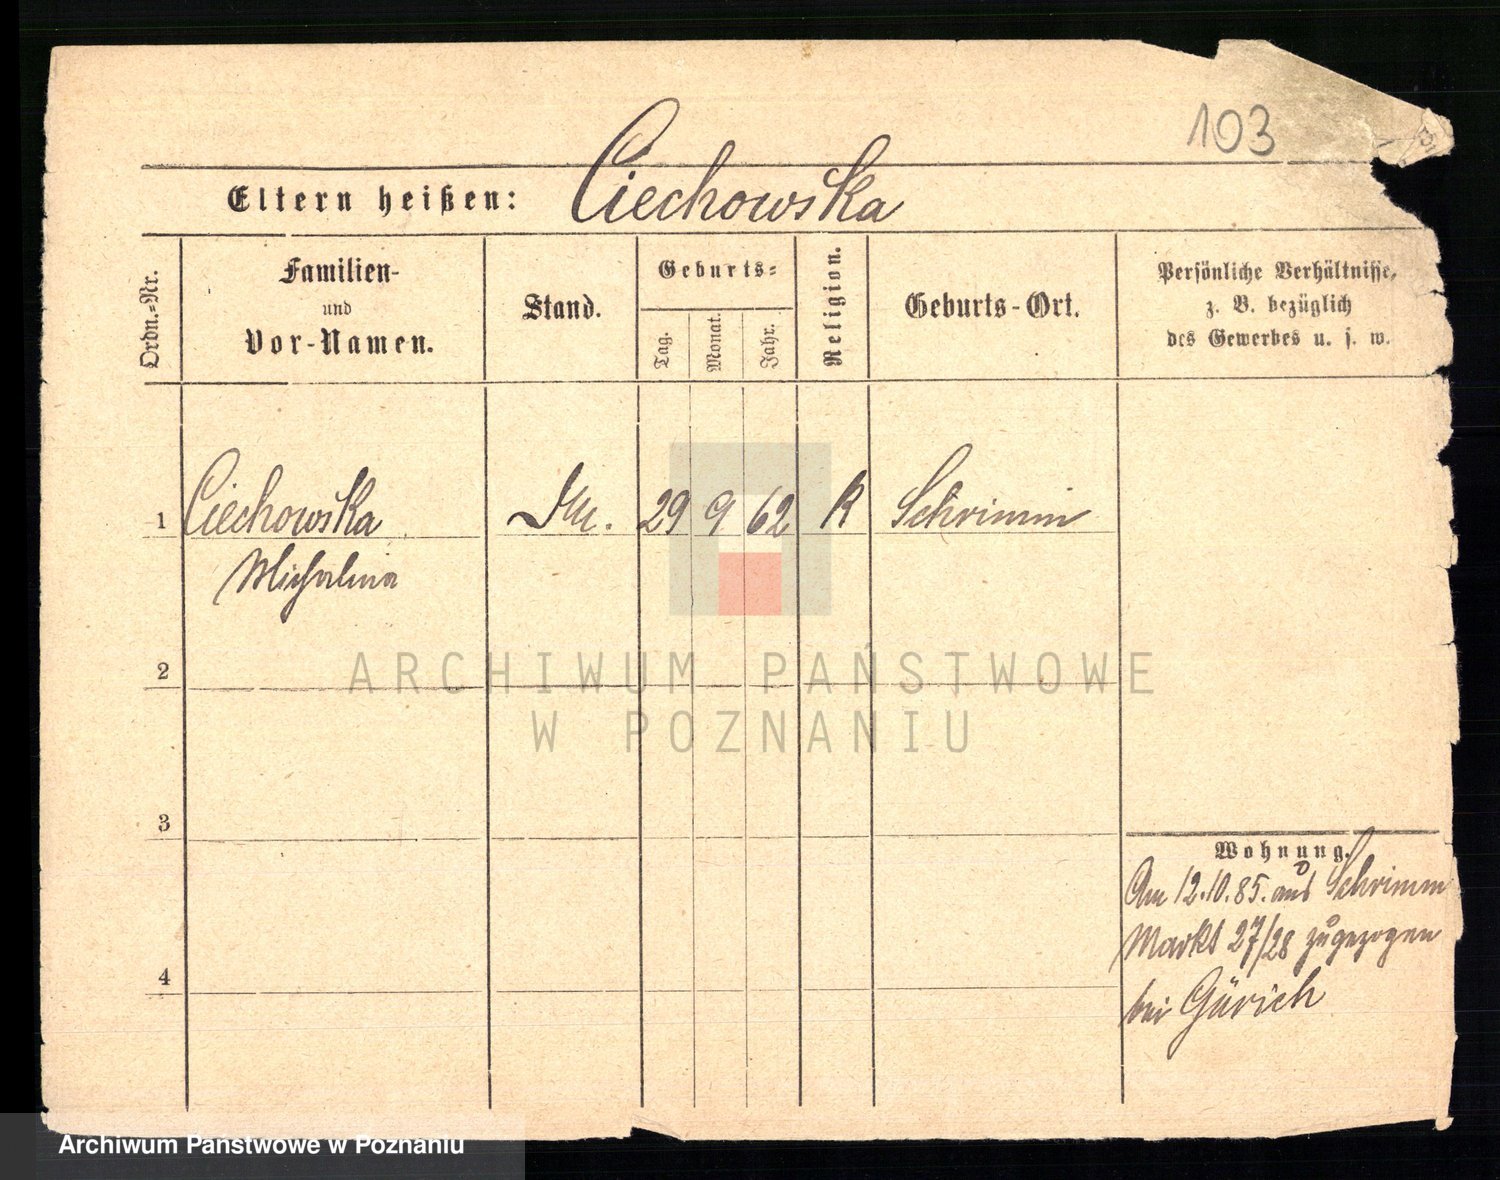 103
Eltern heißen: Ciechowska
Ordn.=Nr.
Familien-
und
Vor-Namen.
Stand.
Geburts=
Tag.
Monat.
Jahr.
Religion.
Geburts-Ort.
Persönliche Verhältnisse,
z. B. bezüglich
des Gewerbes u. s. w.
1 Ciechowska 29 9 62 K Schrimm
Michalina
2
ARCHIWUM PAŃSTWOWE
W POZNANIU
3
Wohnung.
Am 12.10.85. aus Schrimm
Markt 27/28 zugezogen
bei Gürich
4
Archiwum Państwowe w Poznaniu